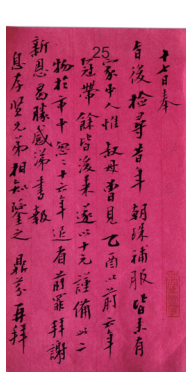 十七日奉
旨後檢尋昔年朝珠補服皆未有
家中人惟叔母曾見乙酉以前六年
冠帶餘皆後來遂以十元謹備此二
物於市中忽二十六年追省前罪拜謝
新恩曷勝感涕書報
息存賢兄弟相知鑒之鼎芬再拜
25